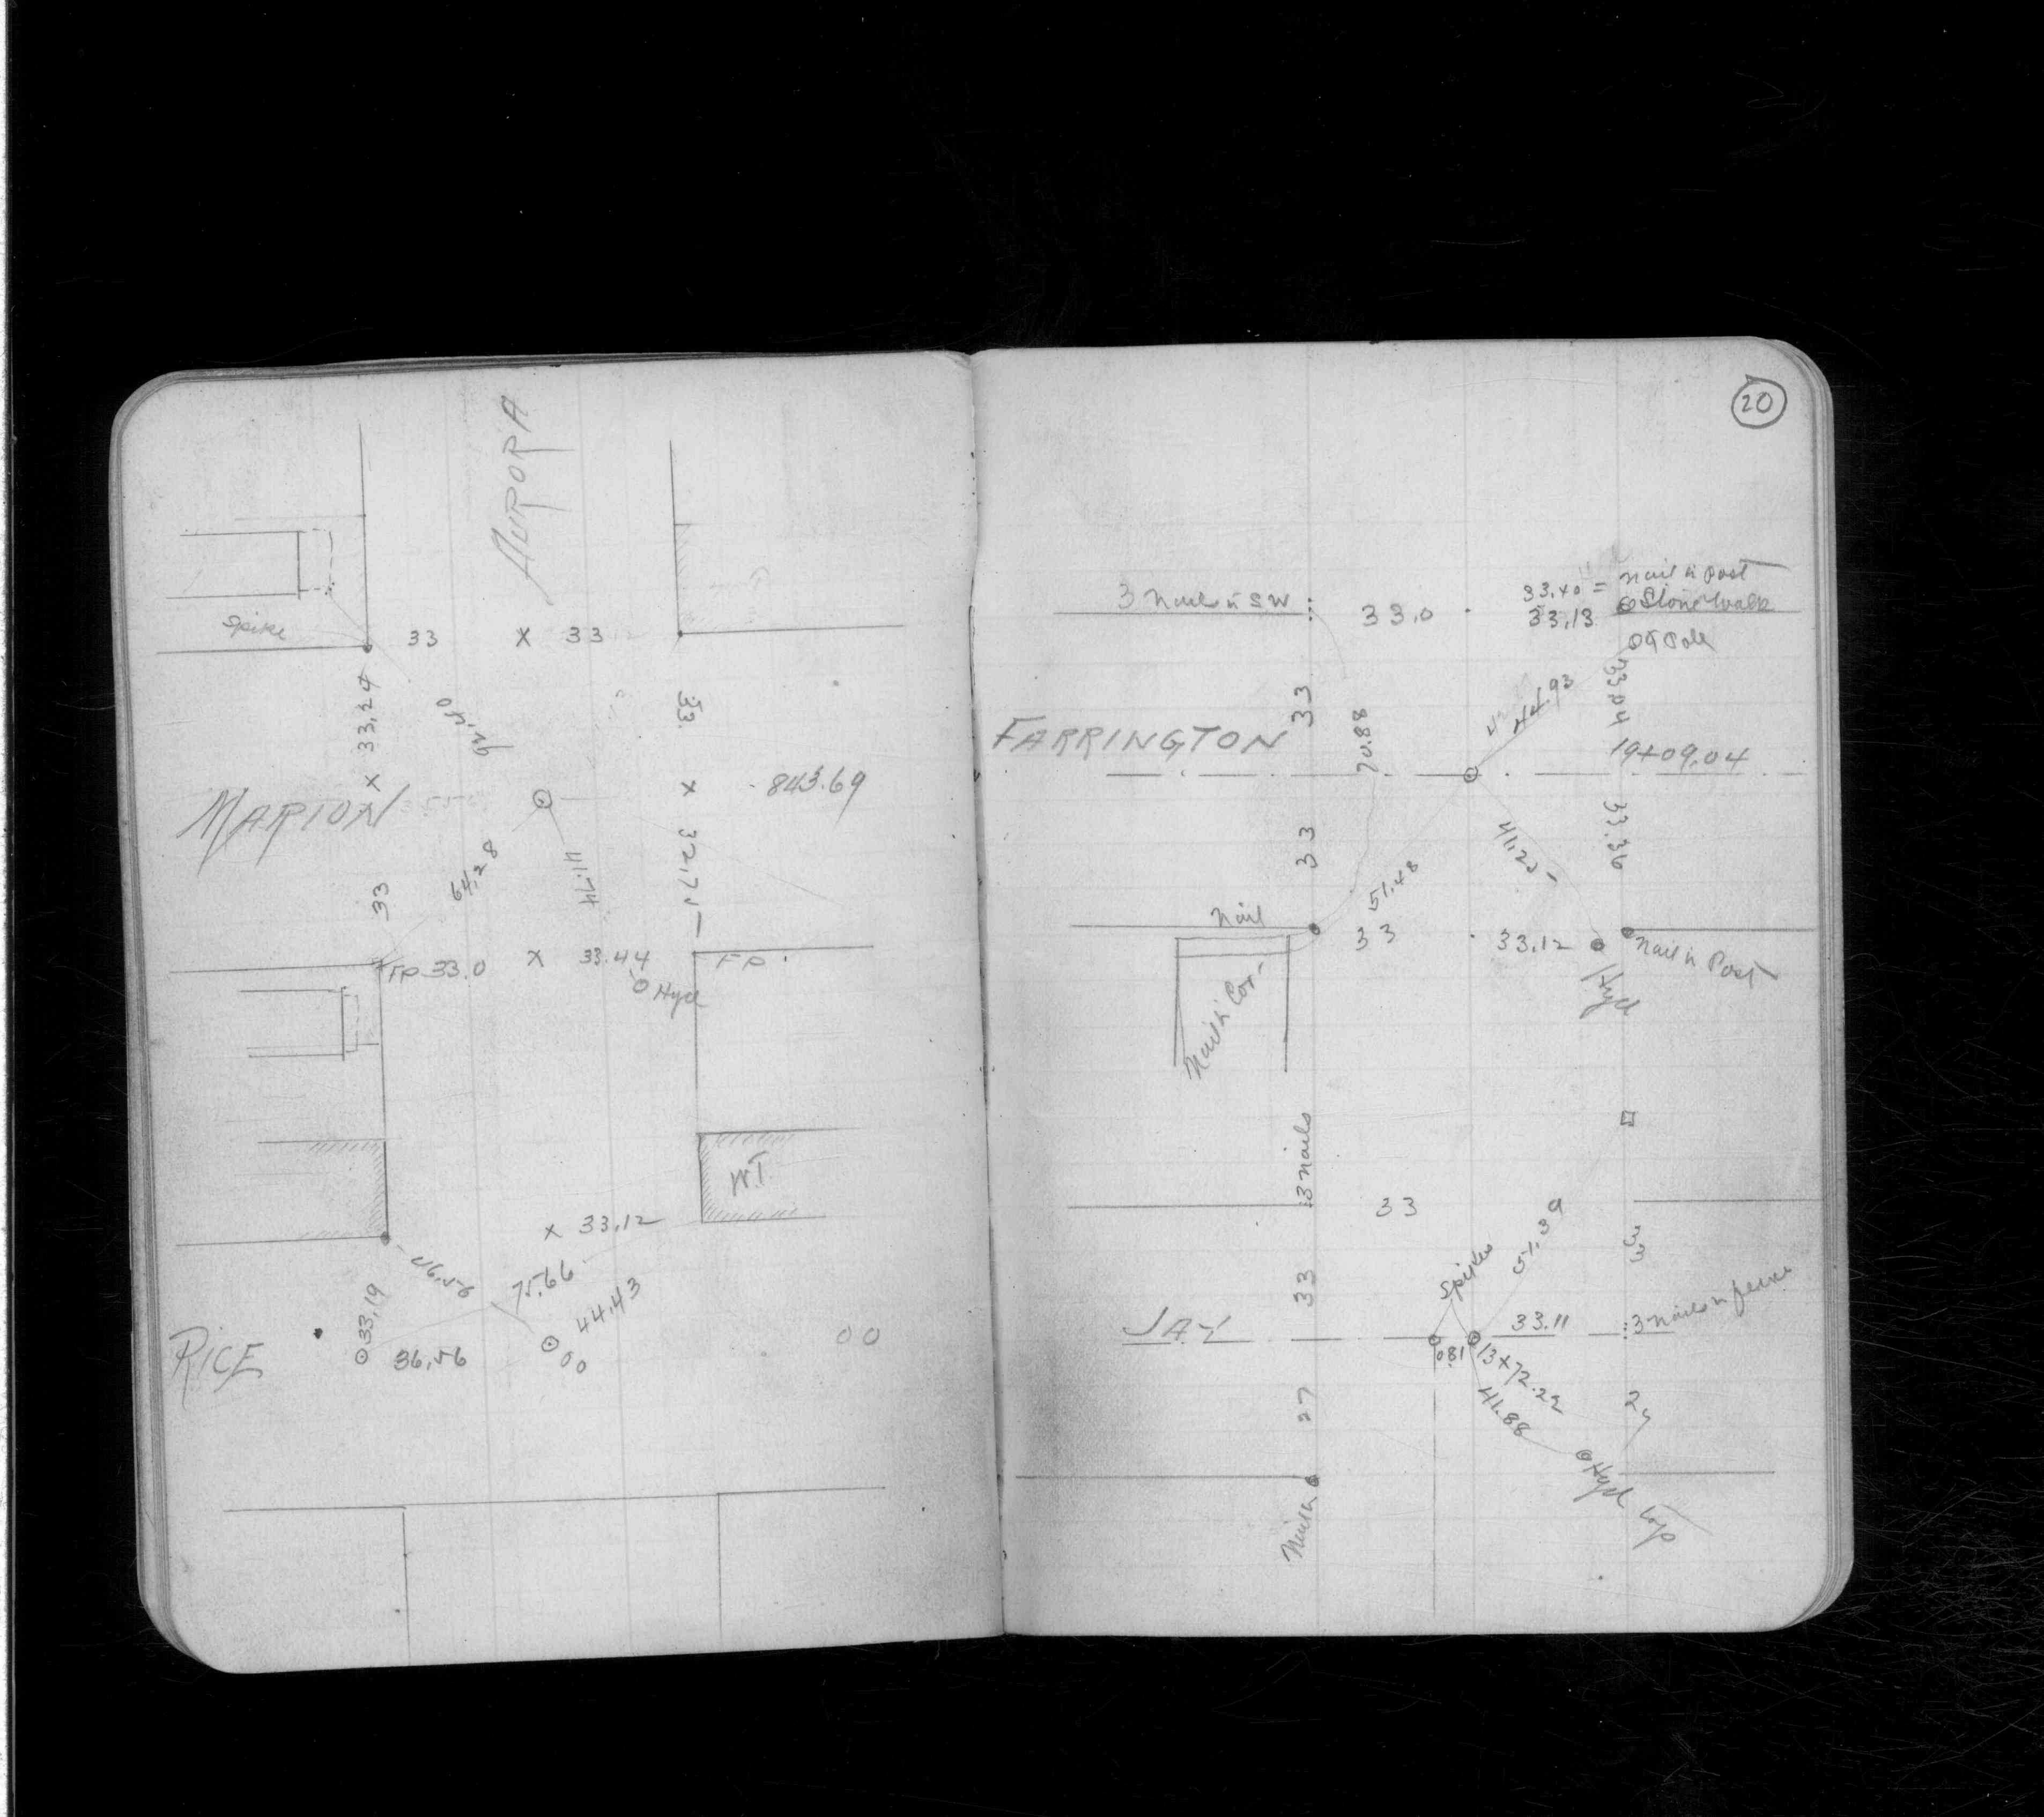 AURORA
Spike
33 x 33
x 33,24
33
x
843.69
MARION
64,28
41.74
33
FP 33.0 x 33.44 FP
Hyd
W.T.
x 33,12
75.66
44,43
33,19
RICE
36,56
00
00
20
3 Nails in SW
33,0
33.40 = Nail in Post
Stone Walk
33,13
Pole
33
44.93
33.04
FARRINGTON
70.88
19+09.04
33
33.36
41.25
51.48
Nail
33
33,12
Nail in Post
Hyd
Nail in Cor
3 Nails
33
51.39
33
Spikes
33
JAY
33.11
3 Nails in fence
0.81
13+72.22
27
41.88
27
Hyd Top